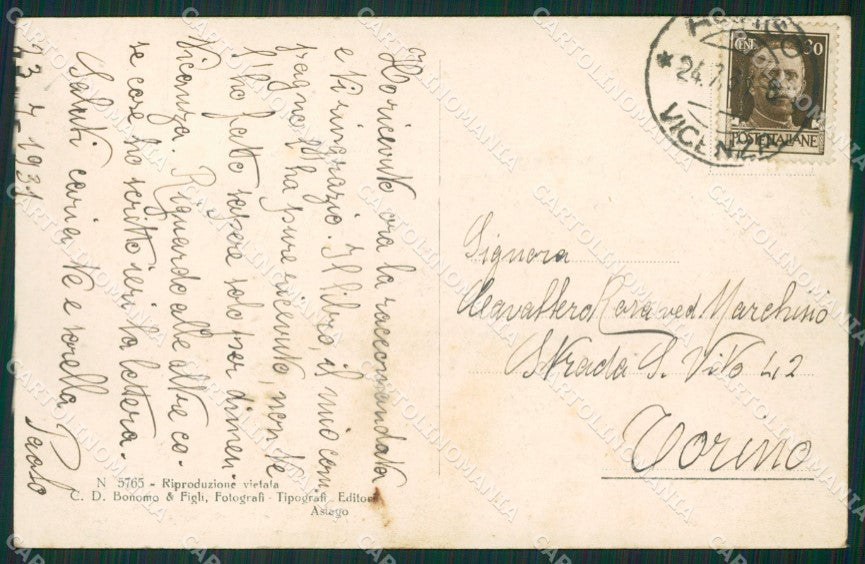 Ho ricevuto ora la raccomandata
e ti ringrazio. Il libro, il mio com
pagno l'ha pure ricevuto, non te
l'ho fatto sapere solo per dimen
ticanza. Riguardo alle altre co
se core ho scritto ieri la lettera.
Saluti cari a te e sorella Paolo
23 7 1931
N 5765 - Riproduzione vietata
C. D. Bonomo & Figli, Fotografi - Tipografi Editori
Asiago
CENT 30
POSTE ITALIANE
* 24.7.31
VICENZA
Signora
Cavallero Rosa ved. Marchisio
Strada S. Vito 42
Torino
CARTOLINOMANIA